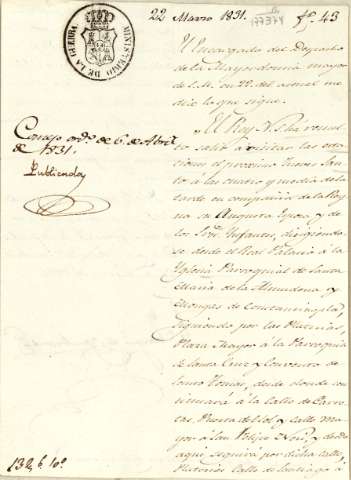 22 Marzo 1831.
fº. 43
177374
MINISTERIO DE LA GUERRA
El Encargado del Despacho
de la Mayordomía mayor
de S.M. en 22 del actual me
dice lo que sigue.
El Rey N.S. ha resuel
to salir á visitar las esta
ciones el proximo Jueves San
to á las cuatro y media de la
tarde en compañia de la Rey
na su Augusta Esposa y de
los Srs. Infantes, dirigiendo
se desde el Real Palacio á la
Yglesia Parroquial de Santa
Maria de la Almudena y
Monjas de Constantinopla,
siguiendo por las Platerias,
Plaza Mayor á la Parroquia
de Santa Cruz y Convento de
Santo Tomas, desde donde con
tinuará á la Calle de Carre
tas, Puerta del Sol y Calle ma
yor á San Felipe Neri, y desde
aqui seguirá por dicha Calle,
Platerias Calle de Santiago á
Consejo ordº. de 6. de Abril
de 1831.
Publicada